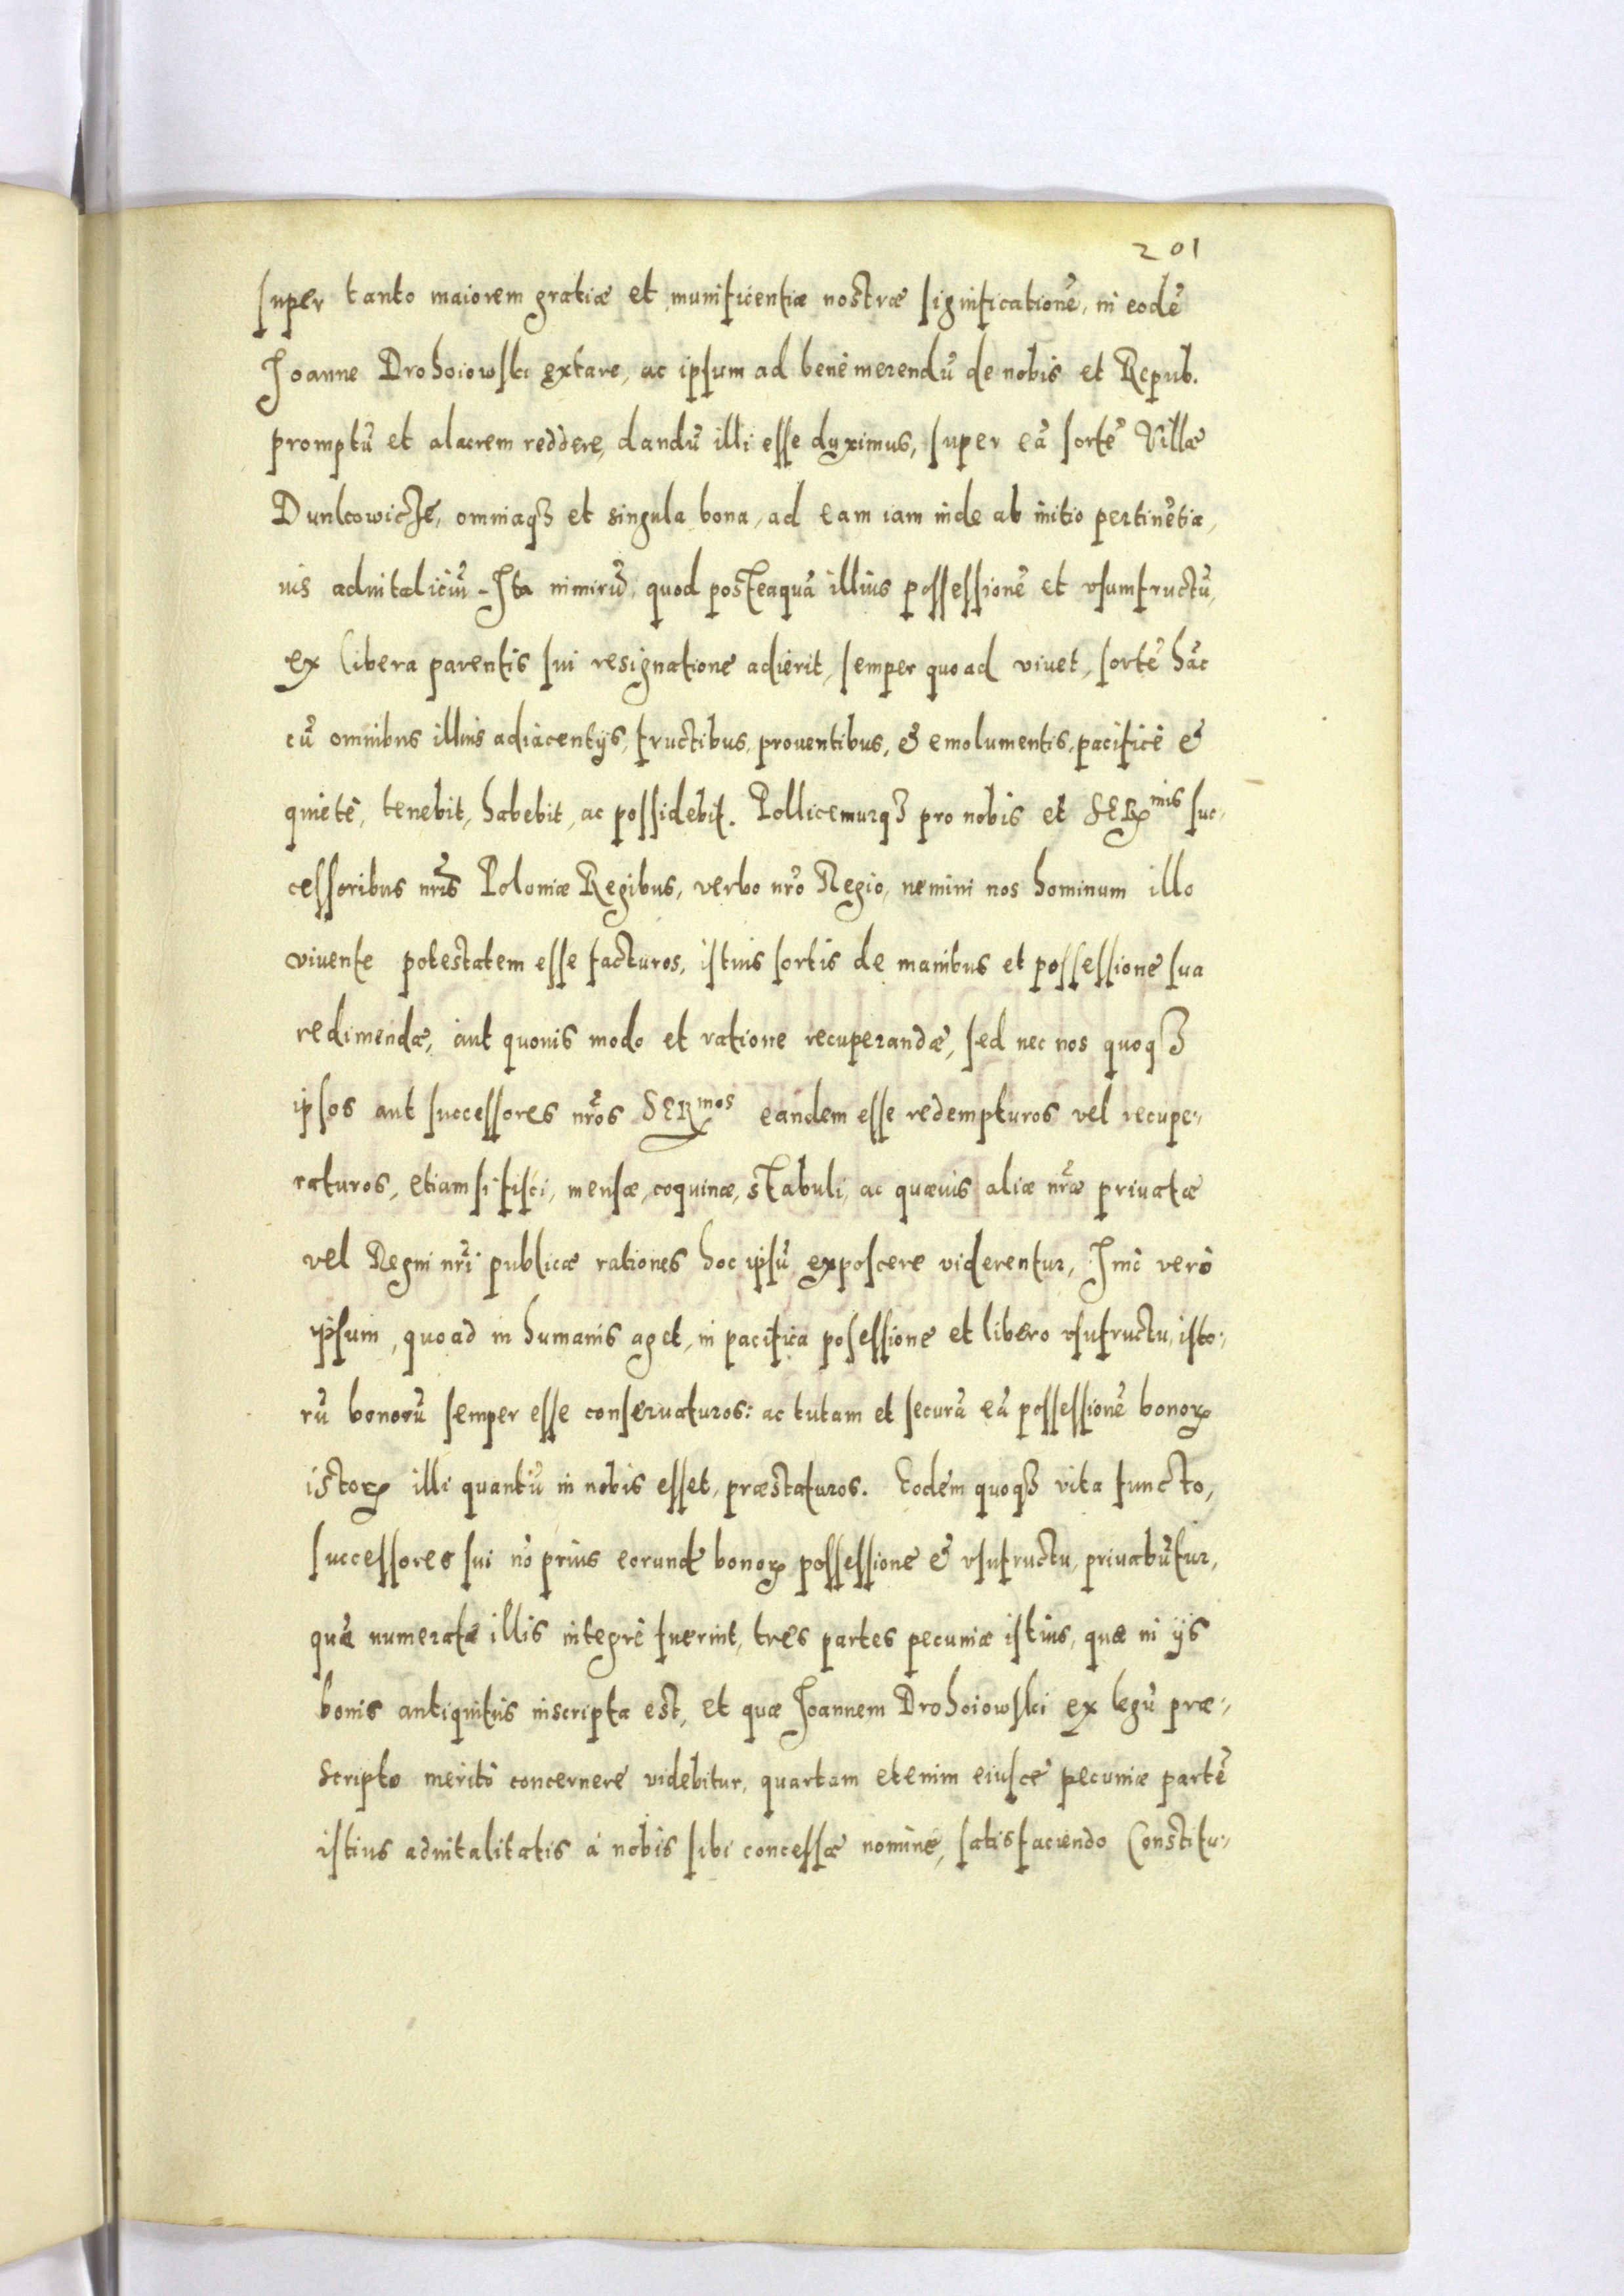 201
super tanto maiorem gratiæ et munificentiæ nostræ significationẽ, in eodẽ
Joanne Drohoiowski extare, ac ipsum ad benè merendũ de nobis et Repub.
promptũ et alacrem reddere, dandũ illi esse duximus, super eã sortẽ Villæ
Dunkowicze, omniaqꝫ et singula bona, ad eam iam inde ab initio pertinẽtia,
ius aduitaliciũ. Ita nimirũ, quod posteaquã illius possessionẽ et vsumfructũ,
ex libera parentis sui resignatione adierit, semper quoad viuet, sortẽ hãc
cũ omnibus illius adiacentijs, fructibus, prouentibus, & emolumentis, pacificè &
quietè, tenebit, habebit, ac possidebit. Pollicemurqꝫ pro nobis et SERmis suc-
cessoribus nr̃is Poloniæ Regibus, verbo nr̃o Regio, nemini nos hominum illo
viuente potestatem esse facturos, istius sortis de manibus et possessione sua
redimendæ, aut quouis modo et ratione recuperandæ, sed nec nos quoqꝫ
ipsos aut successores nr̃os SERmos eandem esse redempturos vel recupe-
raturos, etiamsi fisci, mensæ, coquinæ, stabuli, ac quæuis aliæ nr̃æ priuatæ
vel Regni nr̃i publicæ rationes hoc ipsũ exposcere viderentur, Imò verò
ipsum, quoad in humanis aget, in pacifica posessione et libero vsufructu, isto-
rũ bonorũ semper esse conseruaturos: ac tutam et securã eã possessionẽ bonoꝝ
istoꝝ illi quantũ in nobis esset, præstaturos. Eodem quoqꝫ vita functo,
successores sui nõ prius eorundẽ bonoꝝ possessione & vsufructu priuabũtur,
quã numeratæ illis integrè fuerint, tres partes pecuniæ istius, quæ in ijs
bonis antiquitus inscripta est, et quæ Joannem Drohoiowski ex legũ præ-
scripto meritò concernere videbitur, quartam etenim eiusce pecuniæ partẽ
istius aduitalitatis à nobis sibi concessæ nomine, satisfaciendo Constitu-